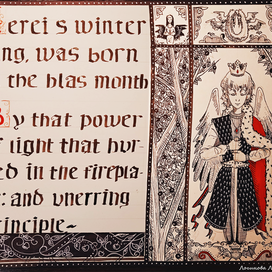 erci s winter
ng, was born
the blas month
By that power
f light that bur-
ed in the firepla-
: and unerring
inciple~